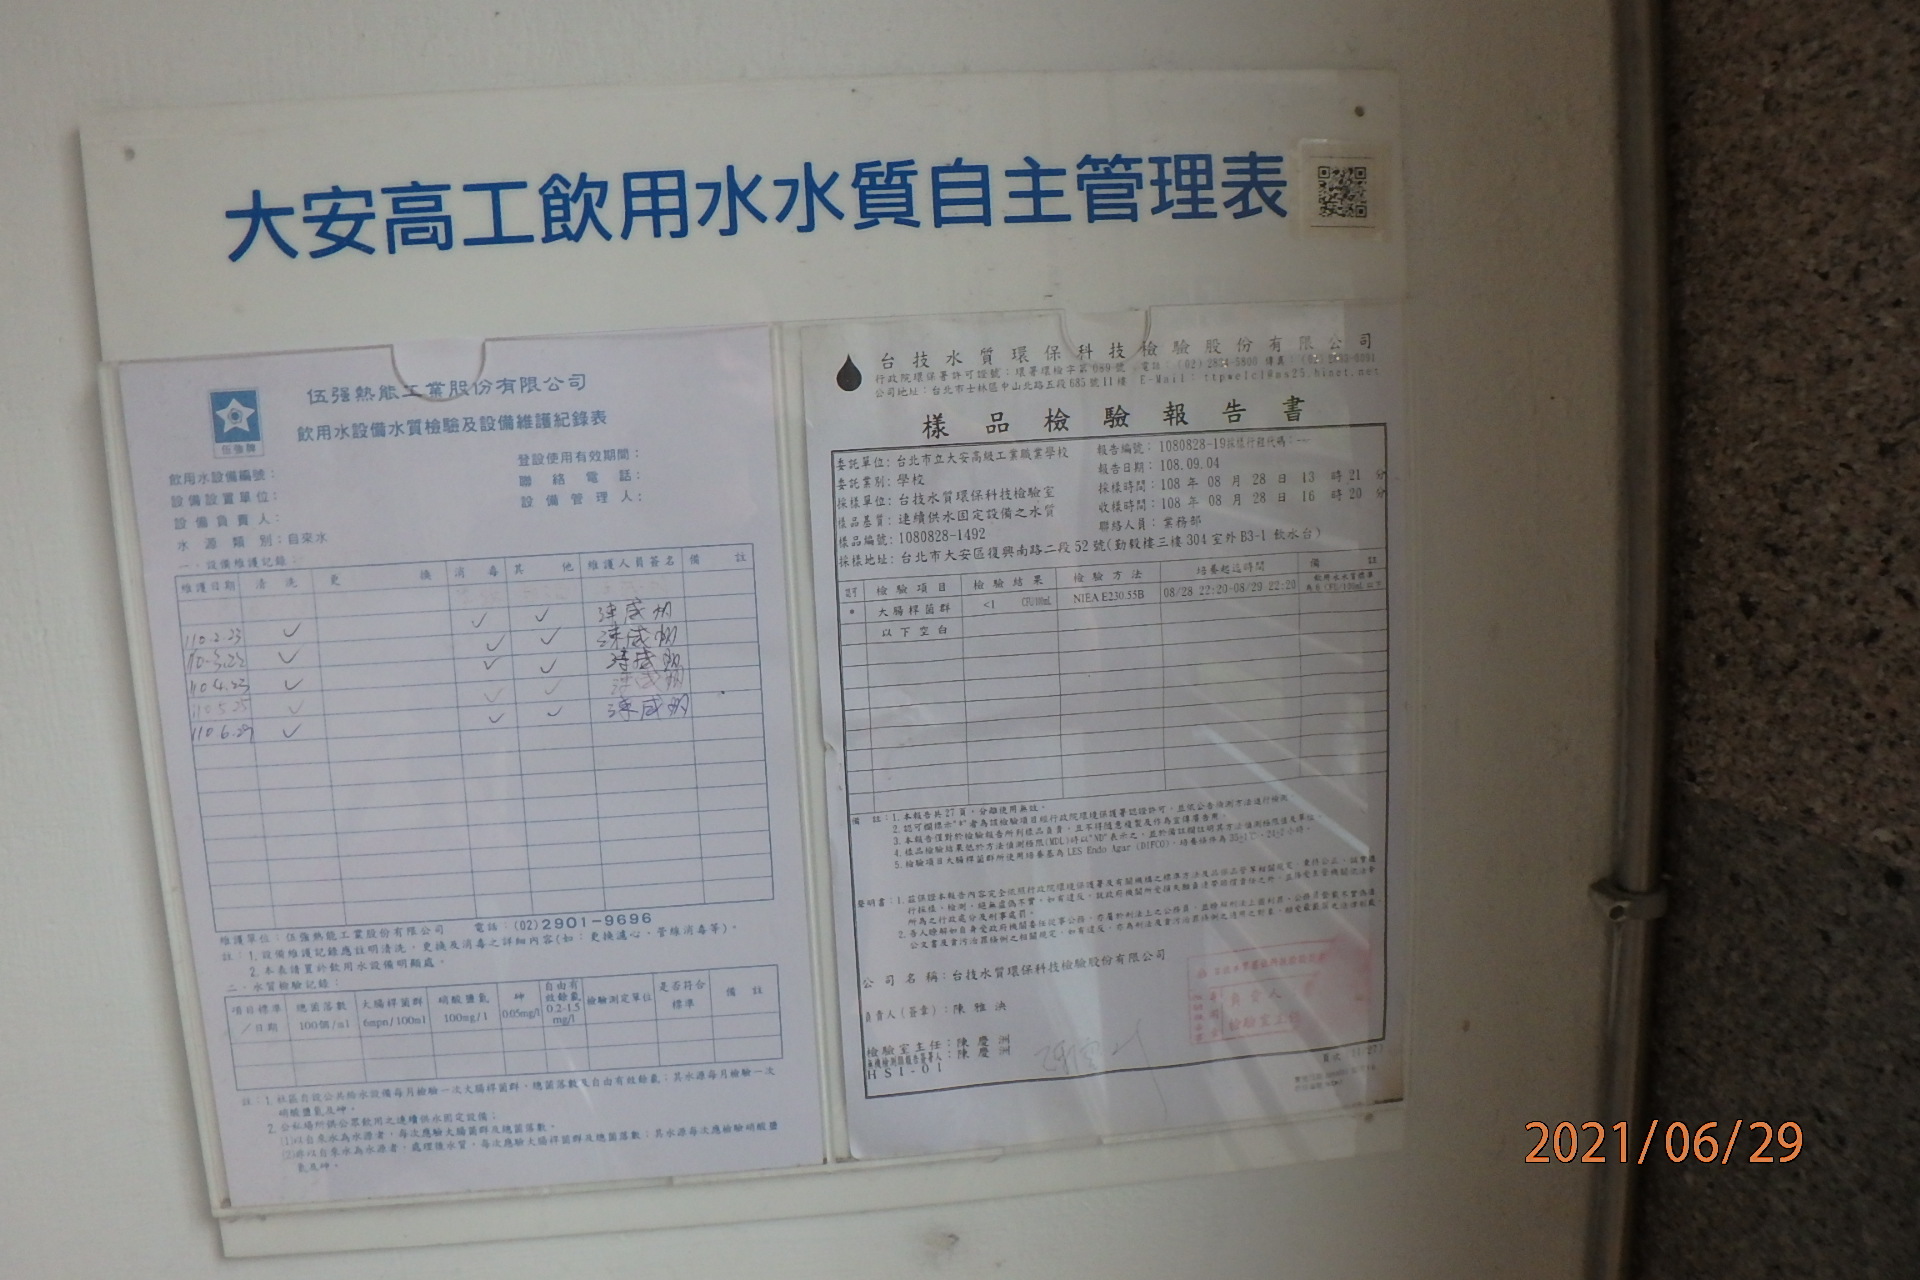 大安高工飲用水水質自主管理表
伍強牌
伍强熱能工業股份有限公司
飲用水設備水質檢驗及設備維護紀錄表
飲用水設備編號：
登設使用有效期間：
設備設置單位：
聯絡電話：
設備負責人：
設備管理人：
水源類別：自來水
一．設備維護記錄：
維護日期 清洗 更換 消毒 其他 維護人員簽名 備註
110.2.23 ✓ ✓ ✓
110.3.22 ✓ ✓ ✓
110.4.23 ✓ ✓ ✓
110.5.25 ✓ ✓ ✓
110.6.29 ✓ ✓ ✓
維護單位：伍强熱能工業股份有限公司 電話：(02)2901-9696
註：1.設備維護記錄應註明清洗、更換及消毒之詳細內容(如：更換濾心、管線消毒等)。
2.本表請置於飲用水設備明顯處。
二．水質檢驗記錄：
項目標準／日期 總菌落數 100個/ml 大腸桿菌群 6mpn/100ml 硝酸鹽氮 100mg/l 砷 0.05mg/l 自由有效餘氯 0.2-1.5 mg/l 檢驗測定單位 是否符合標準 備註
註：1.社區自設公共給水設備每月檢驗一次大腸桿菌群、總菌落數及自由有效餘氯；其水源每月檢驗一次
硝酸鹽氮及砷。
2.公私場所供公眾飲用之連續供水固定設備；
(1)以自來水為水源者，每次應驗大腸菌群及總菌落數。
(2)非以自來水為水源者，處理後水質，每次應驗大腸桿菌群及總菌落數；其水源每次應檢驗硝酸鹽
氮及砷。
台技水質環保科技檢驗股份有限公司
行政院環保署許可證號：環署環檢字第089號 電話：(02)2834-5800 傳真：
公司地址：台北市士林區中山北路五段685號11樓 E-Mail：
樣品檢驗報告書
委託單位：台北市立大安高級工業職業學校
報告編號：1080828-19採樣行程代碼：--
委託業別：學校
報告日期：108.09.04
採樣單位：台技水質環保科技檢驗室
採樣時間：108 年 08 月 28 日 13 時 21 分
樣品基質：連續供水固定設備之水質
收樣時間：108 年 08 月 28 日 16 時 20 分
樣品編號：1080828-1492
聯絡人員：業務部
採樣地址：台北市大安區復興南路二段52號(勤毅樓三樓304室外B3-1飲水台)
認可 檢驗項目 檢驗結果 檢驗方法 培養起迄時間 備註
* 大腸桿菌群 <1 CFU/100mL NIEA E230.55B 08/28 22:20-08/29 22:20
以下空白
備註：1.本報告共27頁，分離使用無效。
2.認可欄標示"*"者為該檢驗項目經行政院環境保護署認證許可，並依公告檢測方法進行檢測。
3.本報告僅對於檢驗報告所列樣品負責，且不得隨意複製及作為宣傳廣告用。
4.樣品檢驗結果低於方法偵測極限(MDL)時以"ND"表示之，並於備註欄註明其方法偵測極限值及單位。
5.檢驗項目大腸桿菌群所使用培養基為LES Endo Agar (DIFCO)，
公司名稱：台技水質環保科技檢驗股份有限公司
負責人(簽章)：陳雅泱
檢驗室主任：陳慶洲
陳慶洲
HSI-01
2021/06/29